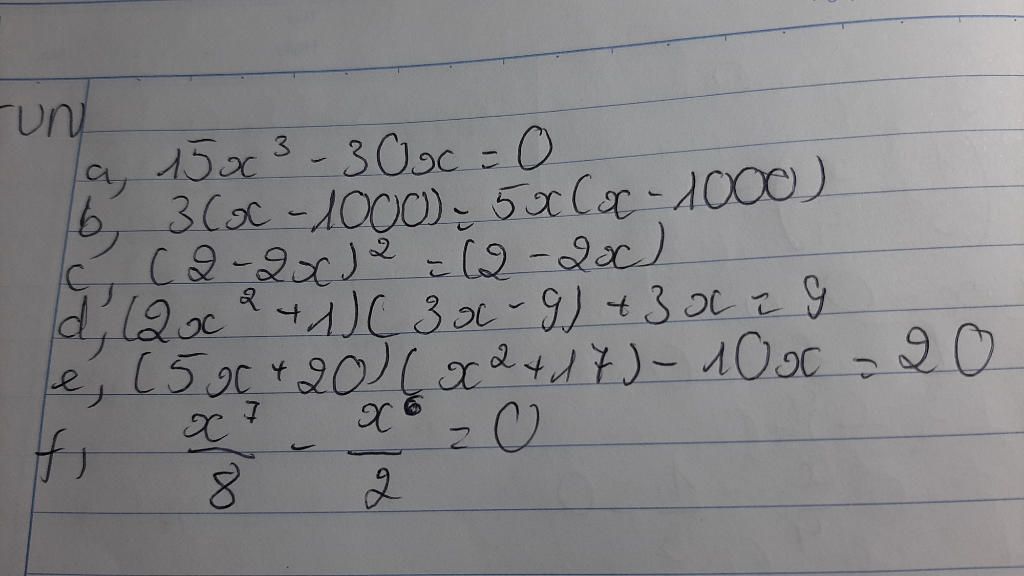 TVN
a, 15x³ - 30x = 0
b, 3(x - 1000) - 5x(x - 1000)
c, (2 - 2x)² = (2 - 2x)
d, (2x² + 1)(3x - 9) + 3x = 9
e, (5x + 20)(x² + 17) - 10x = 20
f, x⁷/8 - x⁶/2 = 0